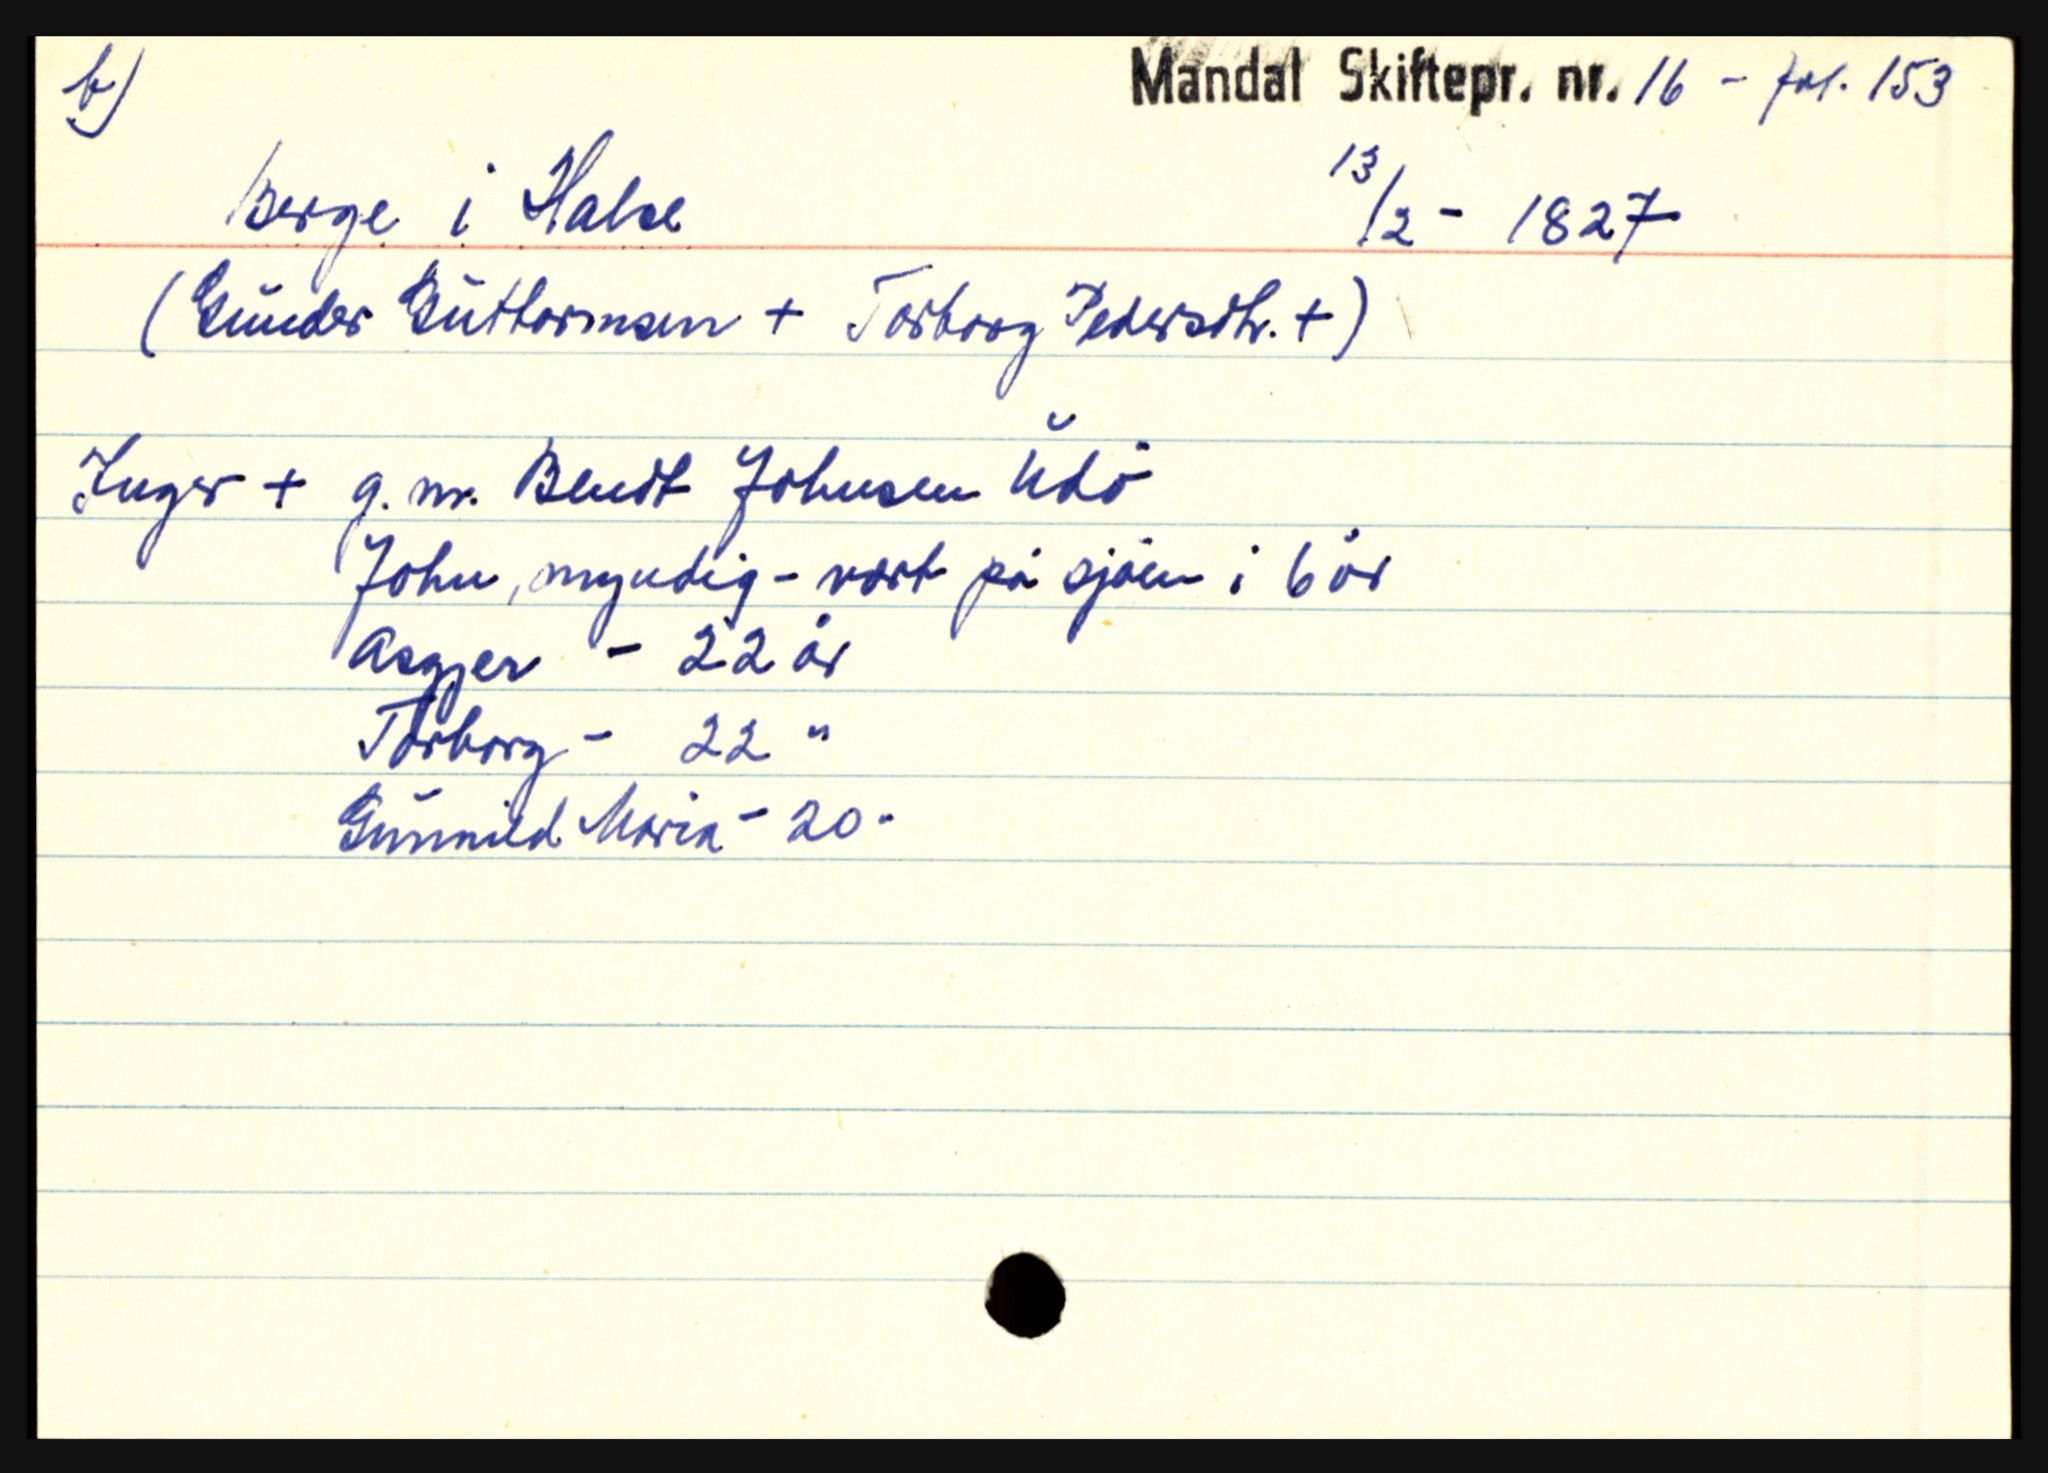 b) Mandal Skiftepr. nr. 16 - fol. 153
Berge i Halse 13/2 - 1827
(Gunder Guttormsen + Torborg Pedersdtr. +)
Inger + g. m. Bendt Johnsen Udö
John, myndig - vært på sjöen i 6 år
Asgjer - 22 år
Torborg - 22 "
Gunnild Maria - 20 "